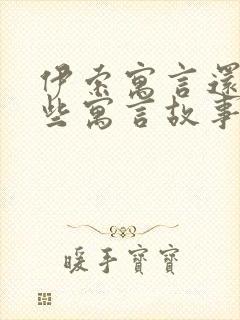 伊索寓言還
些寓言故事
暖手寶寶